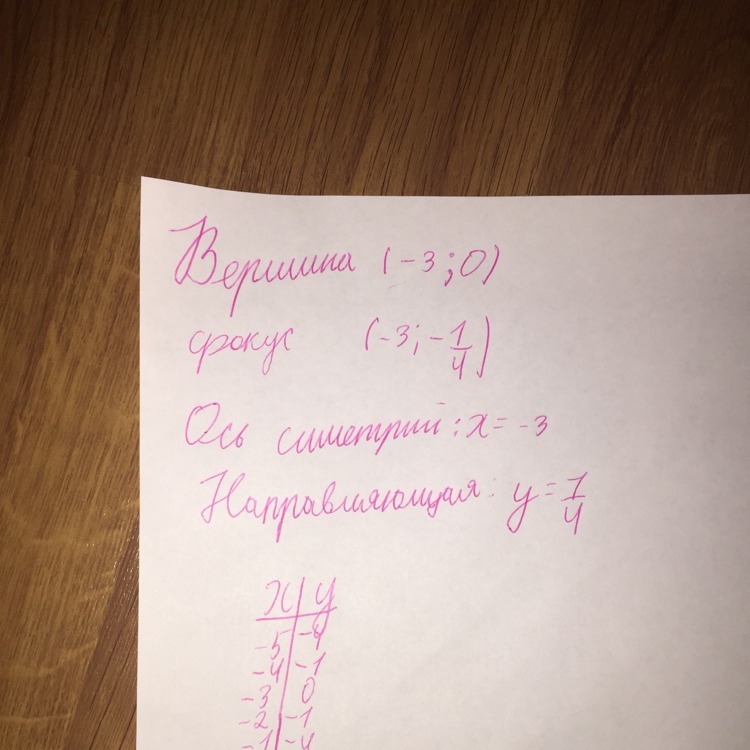 Вершина (-3; 0)
фокус (-3; -1/4)
Ось симетрий: x = -3
Направляющая: y = 1/4
x | y
-5 | -4
-4 | -1
-3 | 0
-2 | -1
-1 | -4